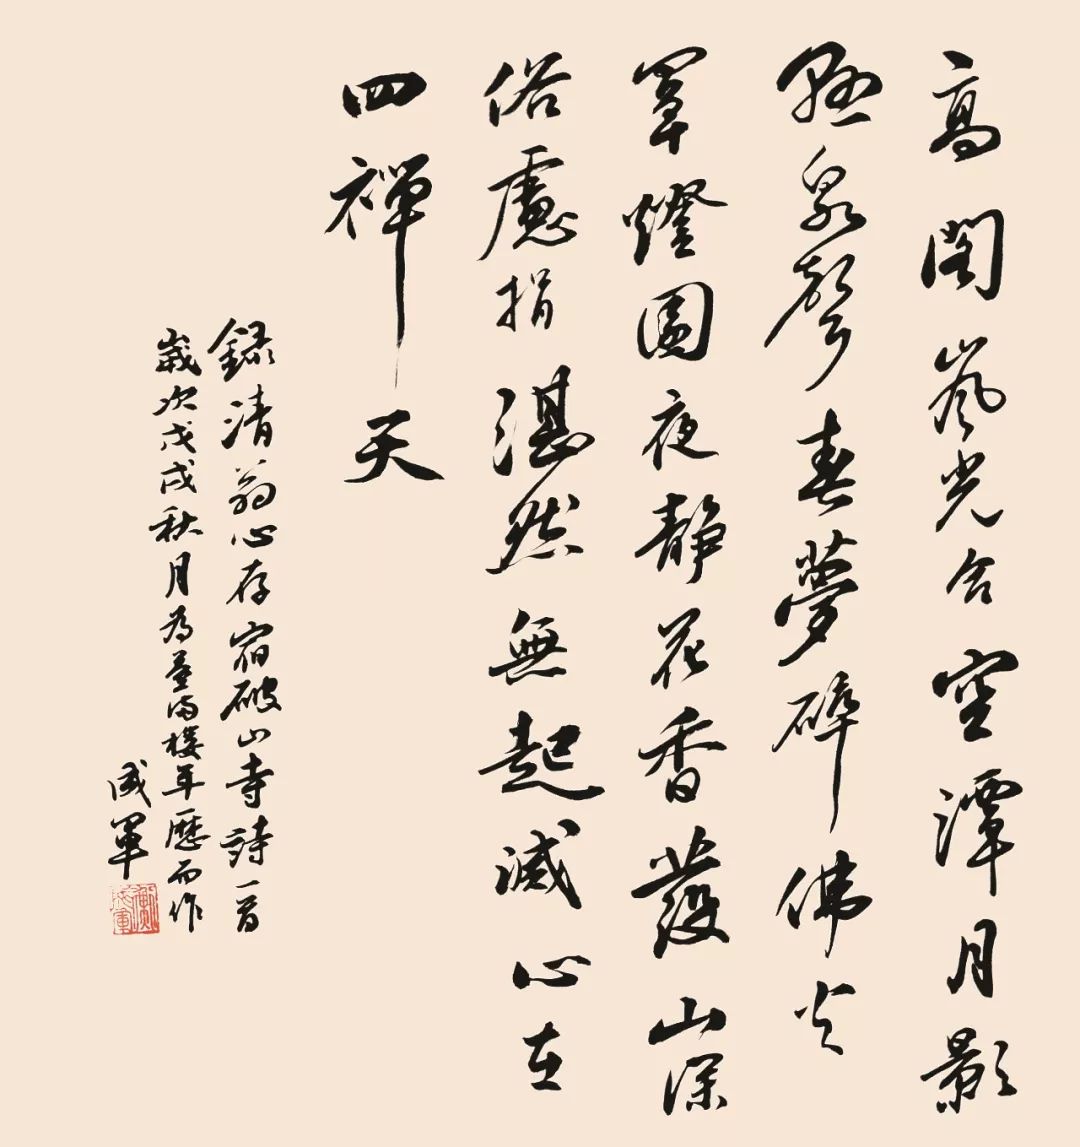 高閣嵐光合空潭月影
懸泉聲春夢碎佛火
罩燈圓夜静花香發山深
俗慮捐湛然無起滅心在
四禪天
錄清翁心存宿破山寺詩一首
歲次戊戌秋月為樓年歷而作
成軍